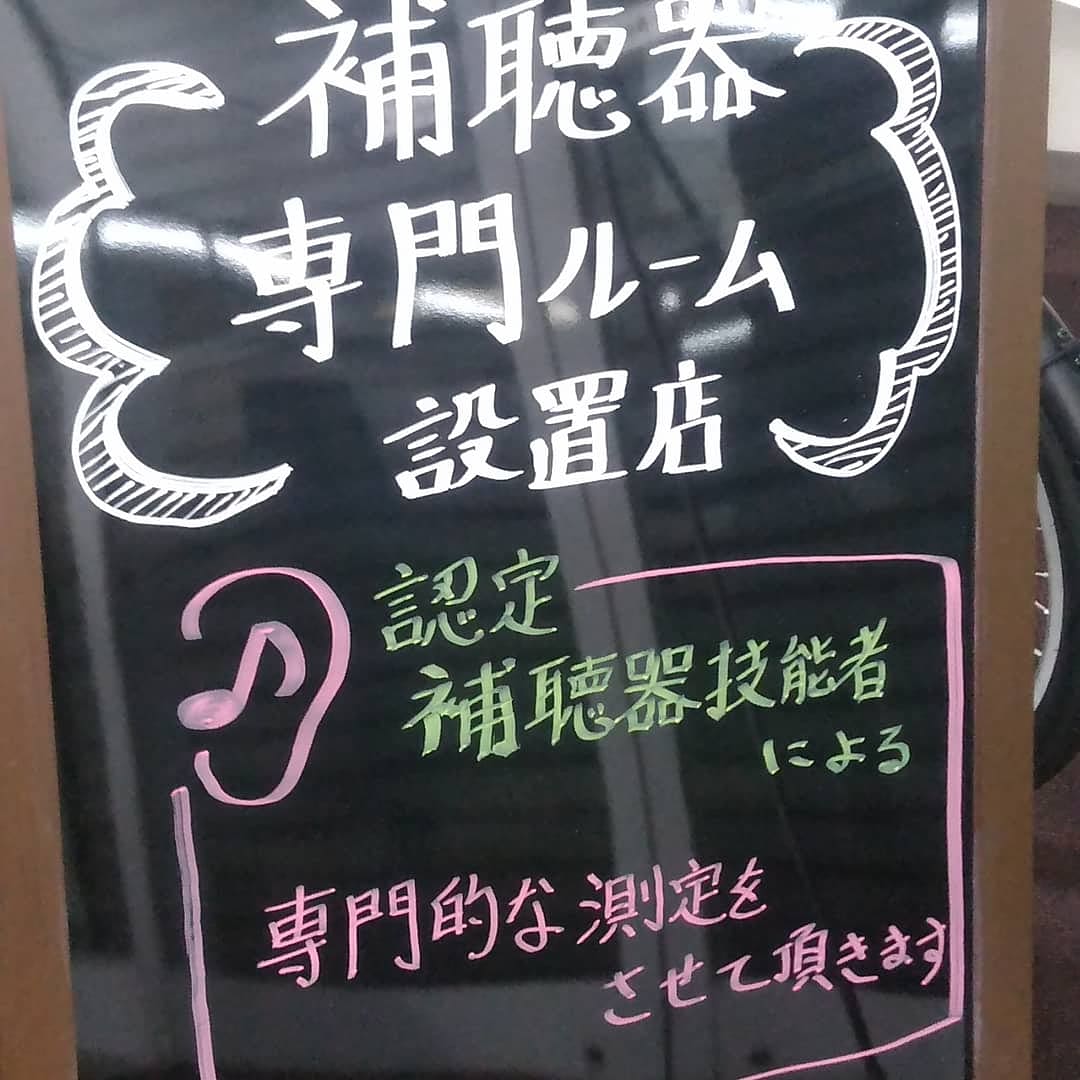 補聴器
専門ルーム
設置店
認定
補聴器技能者
による
専門的な測定を
させて頂きます